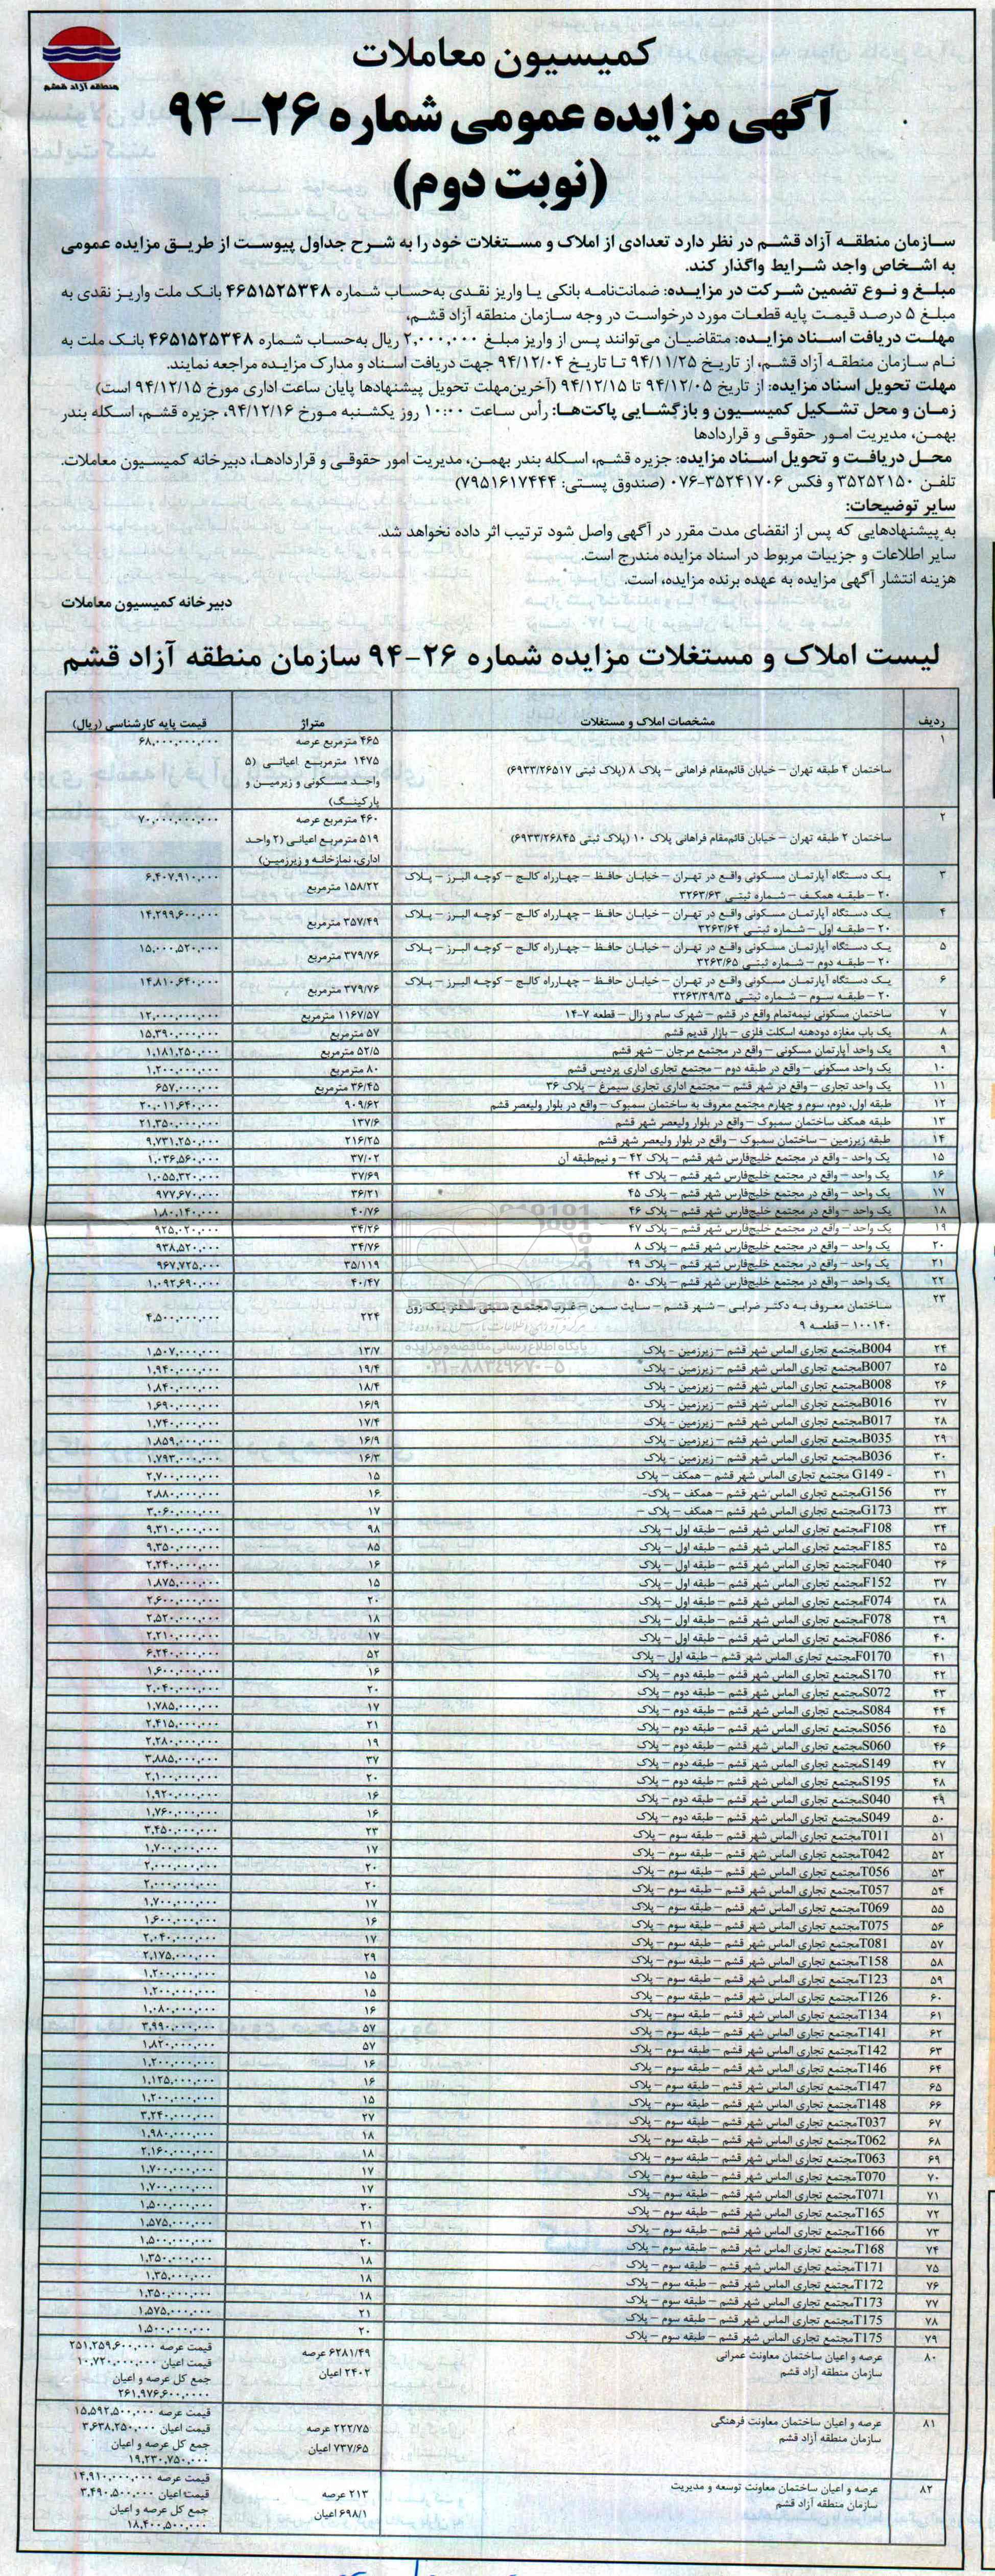 منطقه آزاد قشم
کمیسیون معاملات
آگهی مزایده عمومی شماره ۲۶-۹۴
(نوبت دوم)
سازمان منطقه آزاد قشم در نظر دارد تعدادی از املاک و مستغلات خود را به شرح جداول پیوست از طریق مزایده عمومی
به اشخاص واجد شرایط واگذار کند.
مبلغ و نوع تضمین شرکت در مزایده: ضمانت‌نامه بانکی یا واریز نقدی به‌حساب شماره ۴۶۵۱۵۲۵۳۴۸ بانک ملت واریز نقدی به
مبلغ ۵ درصد قیمت پایه قطعات مورد درخواست در وجه سازمان منطقه آزاد قشم،
مهلت دریافت اسناد مزایده: متقاضیان می‌توانند پس از واریز مبلغ ۲,۰۰۰,۰۰۰ ریال به‌حساب شماره ۴۶۵۱۵۲۵۳۴۸ بانک ملت به
نام سازمان منطقه آزاد قشم، از تاریخ ۹۴/۱۱/۲۵ تا تاریخ ۹۴/۱۲/۰۴ جهت دریافت اسناد و مدارک مزایده مراجعه نمایند.
مهلت تحویل اسناد مزایده: از تاریخ ۹۴/۱۲/۰۵ تا ۹۴/۱۲/۱۵ (آخرین‌مهلت تحویل پیشنهادها پایان ساعت اداری مورخ ۹۴/۱۲/۱۵ است)
زمان و محل تشکیل کمیسیون و بازگشایی پاکت‌ها: رأس ساعت ۱۰:۰۰ روز یکشنبه مورخ ۹۴/۱۲/۱۶، جزیره قشم، اسکله بندر
بهمن، مدیریت امور حقوقی و قراردادها
محل دریافت و تحویل اسناد مزایده: جزیره قشم، اسکله بندر بهمن، مدیریت امور حقوقی و قراردادها، دبیرخانه کمیسیون معاملات.
تلفن ۳۵۲۵۲۱۵۰ و فکس ۳۵۲۴۱۷۰۶-۰۷۶ (صندوق پستی: ۷۹۵۱۶۱۷۴۴۴)
سایر توضیحات:
به پیشنهادهایی که پس از انقضای مدت مقرر در آگهی واصل شود ترتیب اثر داده نخواهد شد.
سایر اطلاعات و جزییات مربوط در اسناد مزایده مندرج است.
هزینه انتشار آگهی مزایده به عهده برنده مزایده، است.
دبیرخانه کمیسیون معاملات
لیست املاک و مستغلات مزایده شماره ۲۶-۹۴ سازمان منطقه آزاد قشم
ردیف مشخصات املاک و مستغلات متراژ قیمت پایه کارشناسی (ریال)
۱ ساختمان ۴ طبقه تهران – خیابان قائم‌مقام فراهانی – پلاک ۸ (پلاک ثبتی ۶۹۳۳/۲۶۵۱۷) ۴۶۵ مترمربع عرصه ۶۸,۰۰۰,۰۰۰,۰۰۰
۱۴۷۵ مترمربع اعیانی (۵
واحد مسکونی و زیرزمین و
پارکینگ)
۲ ساختمان ۲ طبقه تهران – خیابان قائم‌مقام فراهانی پلاک ۱۰ (پلاک ثبتی ۶۹۳۳/۲۶۸۴۵) ۴۶۰ مترمربع عرصه ۷۰,۰۰۰,۰۰۰,۰۰۰
۵۱۹ مترمربع اعیانی (۲ واحد
اداری، نمازخانه و زیرزمین)
۳ یک دستگاه آپارتمان مسکونی واقع در تهران – خیابان حافظ – چهارراه کالج – کوچه البرز – پلاک
۲۰ – طبقه همکف – شماره ثبتی ۳۲۶۳/۶۳ ۱۵۸/۲۲ مترمربع ۶,۴۰۷,۹۱۰,۰۰۰
۴ یک دستگاه آپارتمان مسکونی واقع در تهران – خیابان حافظ – چهارراه کالج – کوچه البرز – پلاک
۲۰ – طبقه اول – شماره ثبتی ۳۲۶۳/۶۴ ۳۵۷/۴۹ مترمربع ۱۴,۲۹۹,۶۰۰,۰۰۰
۵ یک دستگاه آپارتمان مسکونی واقع در تهران – خیابان حافظ – چهارراه کالج – کوچه البرز – پلاک
۲۰ – طبقه دوم – شماره ثبتی ۳۲۶۳/۶۵ ۳۷۹/۷۶ مترمربع ۱۵,۰۰۰,۵۲۰,۰۰۰
۶ یک دستگاه آپارتمان مسکونی واقع در تهران – خیابان حافظ – چهارراه کالج – کوچه البرز – پلاک
۲۰ – طبقه سوم – شماره ثبتی ۳۲۶۳/۳۹/۳۵ ۳۷۹/۷۶ مترمربع ۱۴,۸۱۰,۶۴۰,۰۰۰
۷ ساختمان مسکونی نیمه‌تمام واقع در قشم – شهرک سام و زال – قطعه ۷-۱۴ ۱۱۶۷/۵۷ مترمربع ۱۲,۰۰۰,۰۰۰,۰۰۰
۸ یک باب مغازه دودهنه اسکلت فلزی – بازار قدیم قشم ۵۷ مترمربع ۱۵,۳۹۰,۰۰۰,۰۰۰
۹ یک واحد آپارتمان مسکونی – واقع در مجتمع مرجان – شهر قشم ۵۲/۵ مترمربع ۱,۱۸۱,۲۵۰,۰۰۰
۱۰ یک واحد مسکونی – واقع در طبقه دوم – مجتمع تجاری اداری پردیس قشم ۸۰ مترمربع ۱,۲۰۰,۰۰۰,۰۰۰
۱۱ یک واحد تجاری – واقع در شهر قشم – مجتمع اداری تجاری سیمرغ – پلاک ۳۶ ۳۶/۴۵ مترمربع ۶۵۷,۰۰۰,۰۰۰
۱۲ طبقه اول، دوم، سوم و چهارم مجتمع معروف به ساختمان سمبوک – واقع در بلوار ولیعصر قشم ۹۰۹/۶۲ ۲۰,۰۱۱,۶۴۰,۰۰۰
۱۳ طبقه همکف ساختمان سمبوک – واقع در بلوار ولیعصر شهر قشم ۱۳۷/۶ ۲۱,۳۵۰,۰۰۰,۰۰۰
۱۴ طبقه زیرزمین – ساختمان سمبوک – واقع در بلوار ولیعصر شهر قشم ۲۱۶/۲۵ ۹,۷۳۱,۲۵۰,۰۰۰
۱۵ یک واحد - واقع در مجتمع خلیج‌فارس شهر قشم – پلاک ۴۲ – و نیم‌طبقه آن ۳۷/۰۲ ۱,۰۳۶,۵۶۰,۰۰۰
۱۶ یک واحد – واقع در مجتمع خلیج‌فارس شهر قشم – پلاک ۴۴ ۳۷/۶۹ ۱,۰۵۵,۳۲۰,۰۰۰
۱۷ یک واحد – واقع در مجتمع خلیج‌فارس شهر قشم – پلاک ۴۵ ۳۶/۲۱ ۹۷۷,۶۷۰,۰۰۰
۱۸ یک واحد – واقع در مجتمع خلیج‌فارس شهر قشم – پلاک ۴۶ ۴۰/۷۶ ۱,۸۰,۱۴۰,۰۰۰
۱۹ یک واحد – واقع در مجتمع خلیج‌فارس شهر قشم – پلاک ۴۷ ۳۴/۲۶ ۹۲۵,۰۲۰,۰۰۰
۲۰ یک واحد – واقع در مجتمع خلیج‌فارس شهر قشم – پلاک ۸ ۳۴/۷۶ ۹۳۸,۵۲۰,۰۰۰
۲۱ یک واحد – واقع در مجتمع خلیج‌فارس شهر قشم – پلاک ۴۹ ۳۵/۱۱۹ ۹۶۷,۷۲۵,۰۰۰
۲۲ یک واحد – واقع در مجتمع خلیج‌فارس شهر قشم – پلاک ۵۰ ۴۰/۴۷ ۱,۰۹۲,۶۹۰,۰۰۰
۲۳ ساختمان معروف به دکتر ضرابی – شهر قشم – سایت سمن – غرب مجتمع سپهر – دفتر پیک زون
۱۰۰۱۴۰ – قطعه ۹ ۲۲۴ ۴,۵۰۰,۰۰۰,۰۰۰
۲۴ B004مجتمع تجاری الماس شهر قشم – زیرزمین - پلاک ۱۳/۷ ۱,۵۰۷,۰۰۰,۰۰۰
۲۵ B007مجتمع تجاری الماس شهر قشم – زیرزمین - پلاک ۱۹/۴ ۱,۹۴۰,۰۰۰,۰۰۰
۲۶ B008مجتمع تجاری الماس شهر قشم – زیرزمین - پلاک ۱۸/۴ ۱,۸۴۰,۰۰۰,۰۰۰
۲۷ B016مجتمع تجاری الماس شهر قشم – زیرزمین - پلاک ۱۶/۹ ۱,۶۹۰,۰۰۰,۰۰۰
۲۸ B017مجتمع تجاری الماس شهر قشم – زیرزمین - پلاک ۱۷/۴ ۱,۷۴۰,۰۰۰,۰۰۰
۲۹ B035مجتمع تجاری الماس شهر قشم – زیرزمین - پلاک ۱۶/۹ ۱,۸۵۹,۰۰۰,۰۰۰
۳۰ B036مجتمع تجاری الماس شهر قشم – زیرزمین - پلاک ۱۶/۳ ۱,۷۹۳,۰۰۰,۰۰۰
۳۱ - G149 مجتمع تجاری الماس شهر قشم – همکف – پلاک ۱۵ ۲,۷۰۰,۰۰۰,۰۰۰
۳۲ G156مجتمع تجاری الماس شهر قشم – همکف – پلاک- ۱۶ ۲,۸۸۰,۰۰۰,۰۰۰
۳۳ G173مجتمع تجاری الماس شهر قشم – همکف – پلاک – ۱۷ ۳,۰۶۰,۰۰۰,۰۰۰
۳۴ F108مجتمع تجاری الماس شهر قشم – طبقه اول – پلاک ۹۸ ۹,۳۱۰,۰۰۰,۰۰۰
۳۵ F185مجتمع تجاری الماس شهر قشم – طبقه اول – پلاک ۸۵ ۹,۳۵۰,۰۰۰,۰۰۰
۳۶ F040مجتمع تجاری الماس شهر قشم – طبقه اول – پلاک ۱۶ ۲,۲۴۰,۰۰۰,۰۰۰
۳۷ F152مجتمع تجاری الماس شهر قشم – طبقه اول – پلاک ۱۵ ۱,۸۷۵,۰۰۰,۰۰۰
۳۸ F074مجتمع تجاری الماس شهر قشم – طبقه اول – پلاک ۲۰ ۲,۶۰۰,۰۰۰,۰۰۰
۳۹ F078مجتمع تجاری الماس شهر قشم – طبقه اول – پلاک ۱۸ ۲,۵۲۰,۰۰۰,۰۰۰
۴۰ F086مجتمع تجاری الماس شهر قشم – طبقه اول – پلاک ۱۷ ۲,۲۱۰,۰۰۰,۰۰۰
۴۱ F0170مجتمع تجاری الماس شهر قشم – طبقه اول – پلاک ۵۲ ۶,۲۴۰,۰۰۰,۰۰۰
۴۲ S170مجتمع تجاری الماس شهر قشم – طبقه دوم – پلاک ۱۶ ۱,۶۰۰,۰۰۰,۰۰۰
۴۳ S072مجتمع تجاری الماس شهر قشم – طبقه دوم – پلاک ۲۰ ۲,۰۴۰,۰۰۰,۰۰۰
۴۴ S084مجتمع تجاری الماس شهر قشم – طبقه دوم – پلاک ۱۷ ۱,۷۸۵,۰۰۰,۰۰۰
۴۵ S056مجتمع تجاری الماس شهر قشم – طبقه دوم – پلاک ۲۱ ۲,۴۱۵,۰۰۰,۰۰۰
۴۶ S060مجتمع تجاری الماس شهر قشم – طبقه دوم – پلاک ۱۹ ۲,۲۸۰,۰۰۰,۰۰۰
۴۷ S149مجتمع تجاری الماس شهر قشم – طبقه دوم – پلاک ۳۷ ۳,۸۸۵,۰۰۰,۰۰۰
۴۸ S195مجتمع تجاری الماس شهر قشم – طبقه دوم – پلاک ۲۰ ۲,۱۰۰,۰۰۰,۰۰۰
۴۹ S040مجتمع تجاری الماس شهر قشم – طبقه دوم – پلاک ۱۶ ۱,۹۲۰,۰۰۰,۰۰۰
۵۰ S049مجتمع تجاری الماس شهر قشم – طبقه دوم – پلاک ۱۶ ۱,۷۶۰,۰۰۰,۰۰۰
۵۱ T011مجتمع تجاری الماس شهر قشم – طبقه سوم – پلاک ۲۳ ۳,۴۵۰,۰۰۰,۰۰۰
۵۲ T042مجتمع تجاری الماس شهر قشم – طبقه سوم – پلاک ۱۷ ۱,۷۰۰,۰۰۰,۰۰۰
۵۳ T056مجتمع تجاری الماس شهر قشم – طبقه سوم – پلاک ۲۰ ۲,۰۰۰,۰۰۰,۰۰۰
۵۴ T057مجتمع تجاری الماس شهر قشم – طبقه سوم – پلاک ۲۰ ۲,۰۰۰,۰۰۰,۰۰۰
۵۵ T069مجتمع تجاری الماس شهر قشم – طبقه سوم – پلاک ۱۷ ۱,۷۰۰,۰۰۰,۰۰۰
۵۶ T075مجتمع تجاری الماس شهر قشم – طبقه سوم – پلاک ۱۶ ۱,۶۰۰,۰۰۰,۰۰۰
۵۷ T081مجتمع تجاری الماس شهر قشم – طبقه سوم – پلاک ۱۷ ۲,۰۴۰,۰۰۰,۰۰۰
۵۸ T158مجتمع تجاری الماس شهر قشم – طبقه سوم – پلاک ۲۹ ۲,۱۷۵,۰۰۰,۰۰۰
۵۹ T123مجتمع تجاری الماس شهر قشم – طبقه سوم – پلاک ۱۵ ۱,۲۰۰,۰۰۰,۰۰۰
۶۰ T126مجتمع تجاری الماس شهر قشم – طبقه سوم – پلاک ۱۵ ۱,۲۰۰,۰۰۰,۰۰۰
۶۱ T134مجتمع تجاری الماس شهر قشم – طبقه سوم – پلاک ۱۶ ۱,۰۸۰,۰۰۰,۰۰۰
۶۲ T141مجتمع تجاری الماس شهر قشم – طبقه سوم – پلاک ۵۷ ۳,۹۹۰,۰۰۰,۰۰۰
۶۳ T142مجتمع تجاری الماس شهر قشم – طبقه سوم – پلاک ۵۷ ۱,۸۲۰,۰۰۰,۰۰۰
۶۴ T146مجتمع تجاری الماس شهر قشم – طبقه سوم – پلاک ۱۶ ۱,۲۰۰,۰۰۰,۰۰۰
۶۵ T147مجتمع تجاری الماس شهر قشم – طبقه سوم – پلاک ۱۶ ۱,۱۲۵,۰۰۰,۰۰۰
۶۶ T148مجتمع تجاری الماس شهر قشم – طبقه سوم – پلاک ۱۵ ۱,۲۰۰,۰۰۰,۰۰۰
۶۷ T037مجتمع تجاری الماس شهر قشم – طبقه سوم – پلاک ۲۷ ۳,۲۴۰,۰۰۰,۰۰۰
۶۸ T062مجتمع تجاری الماس شهر قشم – طبقه سوم – پلاک ۱۸ ۱,۹۸۰,۰۰۰,۰۰۰
۶۹ T063مجتمع تجاری الماس شهر قشم – طبقه سوم – پلاک ۱۸ ۲,۱۶۰,۰۰۰,۰۰۰
۷۰ T070مجتمع تجاری الماس شهر قشم – طبقه سوم – پلاک ۱۷ ۱,۷۰۰,۰۰۰,۰۰۰
۷۱ T071مجتمع تجاری الماس شهر قشم – طبقه سوم – پلاک ۱۷ ۱,۷۰۰,۰۰۰,۰۰۰
۷۲ T165مجتمع تجاری الماس شهر قشم – طبقه سوم – پلاک ۲۰ ۱,۵۰۰,۰۰۰,۰۰۰
۷۳ T166مجتمع تجاری الماس شهر قشم – طبقه سوم – پلاک ۲۱ ۱,۵۷۵,۰۰۰,۰۰۰
۷۴ T168مجتمع تجاری الماس شهر قشم – طبقه سوم – پلاک ۲۰ ۱,۵۰۰,۰۰۰,۰۰۰
۷۵ T171مجتمع تجاری الماس شهر قشم – طبقه سوم – پلاک ۱۸ ۱,۳۵۰,۰۰۰,۰۰۰
۷۶ T172مجتمع تجاری الماس شهر قشم – طبقه سوم – پلاک ۱۸ ۱,۳۵,۰۰۰,۰۰۰
۷۷ T173مجتمع تجاری الماس شهر قشم – طبقه سوم – پلاک ۱۸ ۱,۳۵۰,۰۰۰,۰۰۰
۷۸ T175مجتمع تجاری الماس شهر قشم – طبقه سوم – پلاک ۲۱ ۱,۵۷۵,۰۰۰,۰۰۰
۷۹ T175مجتمع تجاری الماس شهر قشم – طبقه سوم – پلاک ۲۰ ۱,۵۰۰,۰۰۰,۰۰۰
۸۰ عرصه و اعیان ساختمان معاونت عمرانی ۶۲۸۱/۴۹ عرصه قیمت عرصه ۲۵۱,۲۵۹,۶۰۰,۰۰۰
سازمان منطقه آزاد قشم ۲۴۰۲ اعیان قیمت اعیان ۱۰,۷۲۰,۰۰۰,۰۰۰
جمع کل عرصه و اعیان
۲۶۱,۹۷۶,۶۰۰,۰۰۰
۸۱ عرصه و اعیان ساختمان معاونت فرهنگی ۲۲۲/۷۵ عرصه قیمت عرصه ۱۵,۵۹۲,۵۰۰,۰۰۰
سازمان منطقه آزاد قشم ۷۳۷/۶۵ اعیان قیمت اعیان ۳,۶۳۸,۲۵۰,۰۰۰
جمع کل عرصه و اعیان
۱۹,۲۳۰,۷۵۰,۰۰۰
۸۲ عرصه و اعیان ساختمان معاونت توسعه و مدیریت ۲۱۳ عرصه قیمت عرصه ۱۴,۹۱۰,۰۰۰,۰۰۰
سازمان منطقه آزاد قشم ۶۹۸/۱ اعیان قیمت اعیان ۳,۴۹۰,۵۰۰,۰۰۰
جمع کل عرصه و اعیان
۱۸,۴۰۰,۵۰۰,۰۰۰